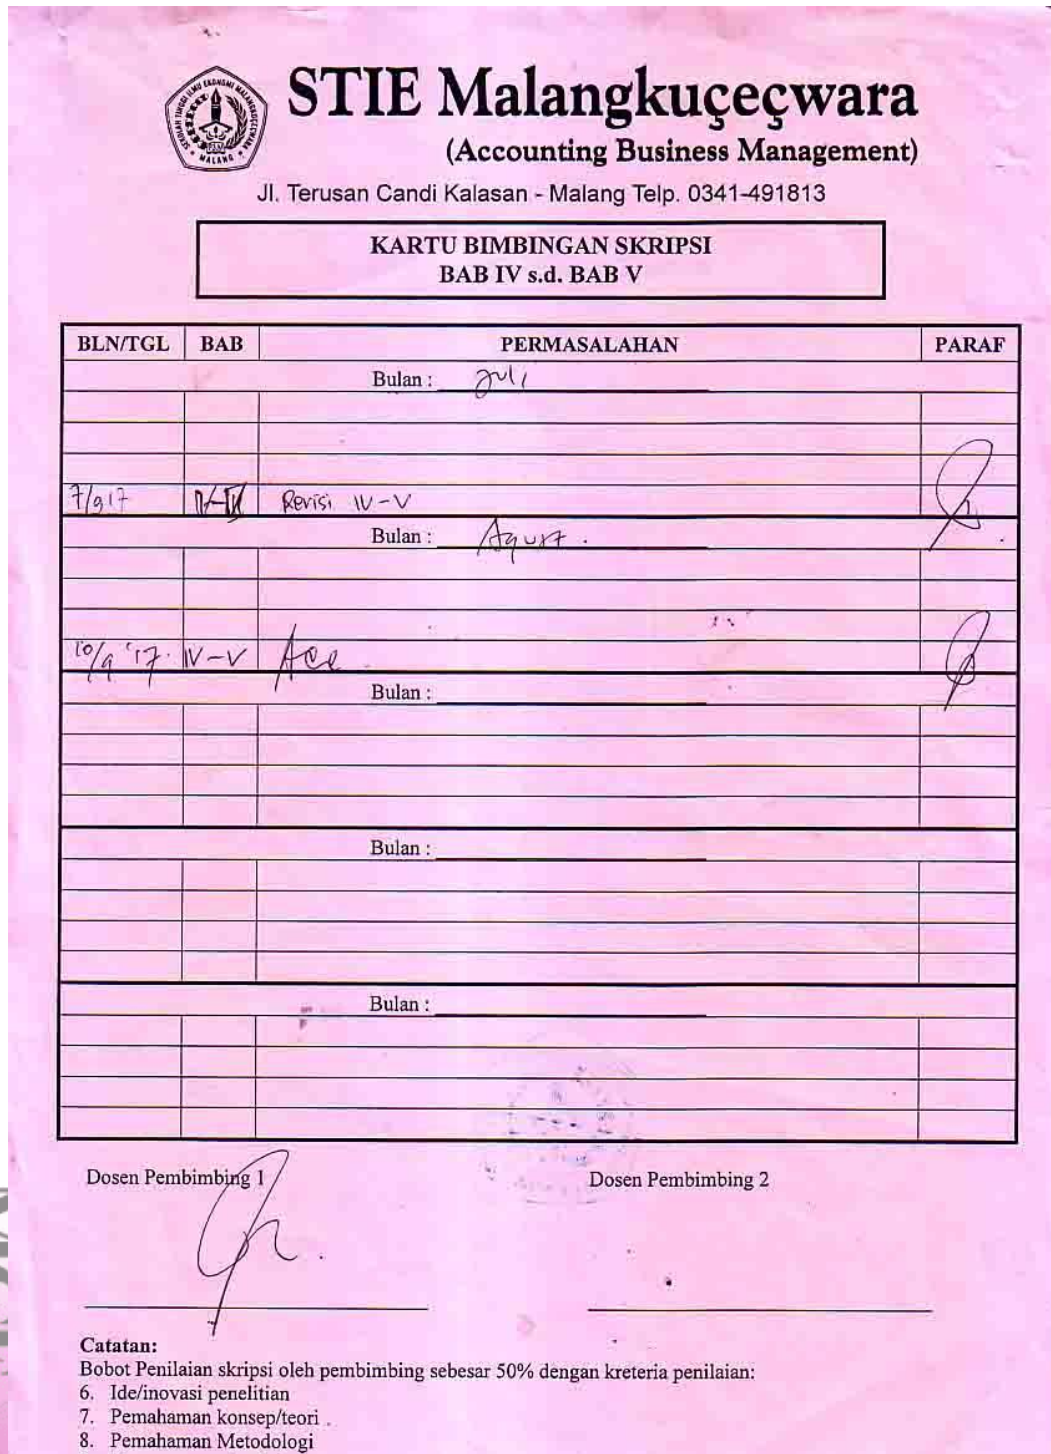 SEKOLAH TINGGI ILMU EKONOMI MALANGKUCECWARA
MALANG
STIE Malangkuçeçwara
(Accounting Business Management)
Jl. Terusan Candi Kalasan - Malang Telp. 0341-491813
KARTU BIMBINGAN SKRIPSI
BAB IV s.d. BAB V
BLN/TGL BAB PERMASALAHAN PARAF
Bulan : Juli
Revisi IV-V
Bulan : Agust.
10/9 '17. IV-V Acc
Bulan :
Bulan :
Bulan :
Dosen Pembimbing 1 Dosen Pembimbing 2
Catatan:
Bobot Penilaian skripsi oleh pembimbing sebesar 50% dengan kreteria penilaian:
6. Ide/inovasi penelitian
7. Pemahaman konsep/teori
8. Pemahaman Metodologi